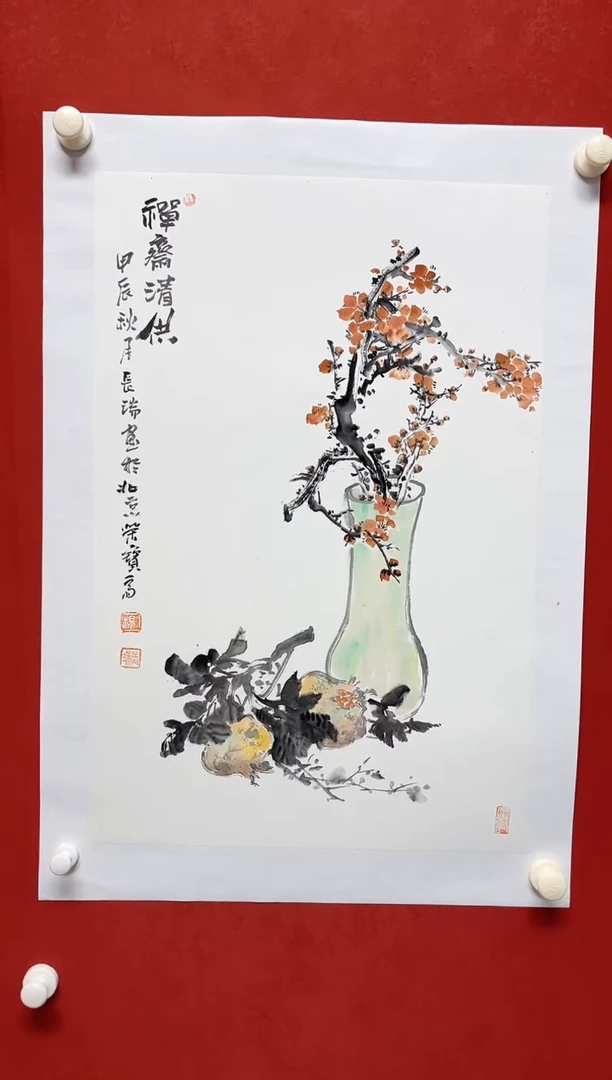 禪齋清供
甲辰秋月長瑞畫於北京榮寶齋